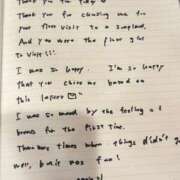 Thank you for today
Thank you for choosing me for
your first visit to a Soapland,
And you were the first girl
to visit !!
I was so happy. I'm so happy
that you chose me based on
this
I was so moved by the feeling of
breasts for the first time.
There were times when things didn't go
well, but it was fun!